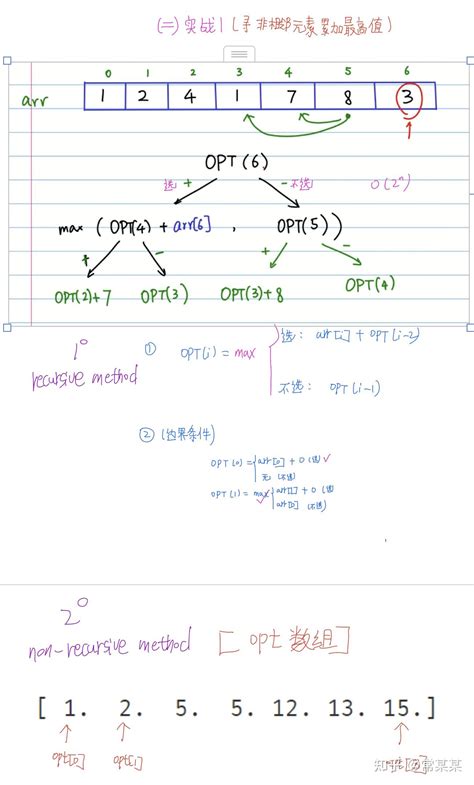 (二) 实战1 (寻非相邻元素累加最高值)
0 1 2 3 4 5 6
arr 1 2 4 1 7 8 3
OPT(6)
选 + - 不选 O(2ⁿ)
max ( OPT(4) + arr[6] , OPT(5) )
+ - + -
OPT(2)+7 OPT(3) OPT(3)+8 OPT(4)
1° ① OPT(i) = max 选: arr[i] + OPT(i-2)
recursive method 不选: OPT(i-1)
② (边界条件)
OPT(0) = arr[0] + 0 (选) ✓
无 (不选)
OPT(1) = max arr[1] + 0 (选)
✓ arr[0] (不选)
2°
non-recursive method [ opt 数组]
[ 1. 2. 5. 5. 12. 13. 15.]
opt[0] opt[1]
知乎 @常某某